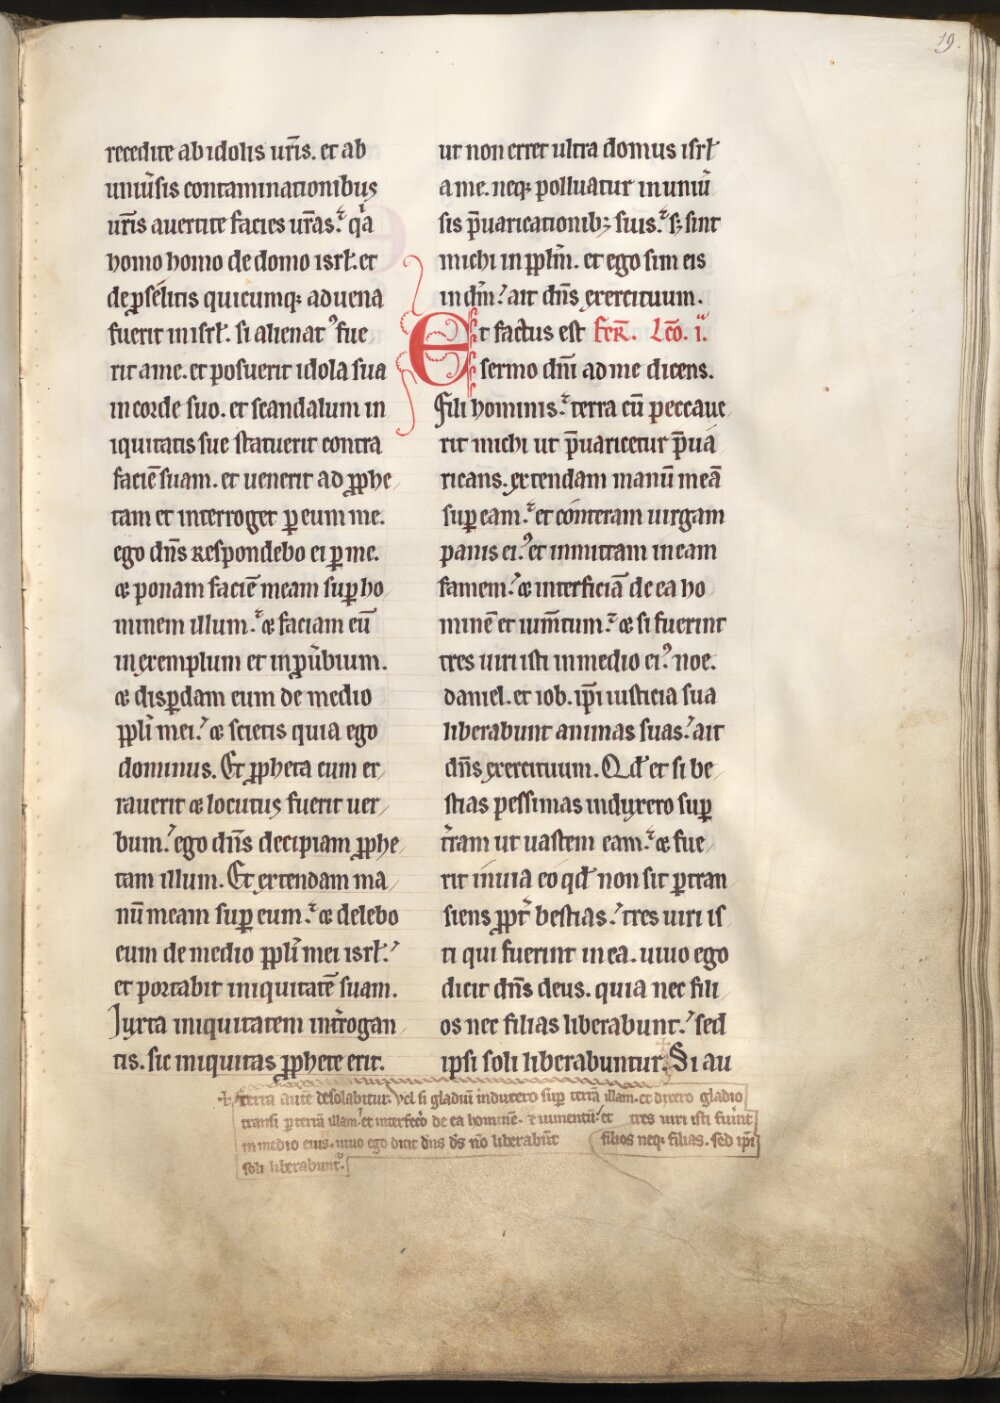 19.
recedite ab idolis ur̄is. et ab
uniu̾sis contaminationibus
ur̄is auertite facies ur̄as. qͥa
homo homo de domo isrł. et
de p̱selitis quicumqꝫ aduena
fuerit in isrł. si alienatꝰ fue
rit a me. et posuerit idola sua
in corde suo. et scandalum in
iquitatis sue statuerit contra
faciē suam. et uenerit ad ꝓphe
tam et interroget ꝑ eum me.
ego dn̄s respondebo ei ꝑ me.
⁊ ponam faciē meam suꝑ ho
minem illum. ⁊ faciam eū
in exemplum et in ꝓu̾bium.
⁊ disꝑdam eum de medio
ppl̄i mei. ⁊ scietis quia ego
dominus. Et ꝓpheta cum er
rauerit ⁊ locutus fuerit uer
bum. ego dn̄s decipiam ꝓphe
tam illum. Et extendam ma
nū meam suꝑ eum. ⁊ delebo
eum de medio ppl̄i mei isrł.
et portabit iniquitatē suam.
Iuxta iniquitatem int̾rogan
tis. sic iniquitas ꝓphete erit.
ut non erret ultra domus isrł
a me. neqꝫ polluatur in uniu̾
sis p̄uaricationibꝫ suis. sꝫ sint
michi in ppl̄m. et ego sim eis
in dm̄. ait dn̄s exercituum.
Et factus est fer̄. Lc̄o. i.ᵃ
sermo dn̄i ad me dicens.
Fili hominis. terra cū peccaue
rit michi ut p̄uaricetur p̄ua
ricans. extendam manū meā
suꝑ eam. et conteram uirgam
panis eiꝰ. et inmittam in eam
famem. ⁊ interficiā de ea ho
minē et ium̄tum. ⁊ si fuerint
tres uiri isti in medio eiꝰ. noe.
daniel. et iob. ip̄i iusticia sua
liberabunt animas suas. ait
dn̄s exercituum. Qd̄ et si be
stias pessimas induxero suꝑ
t̾ram ut uastem eam. ⁊ fue
rit inuia eo qd̄ non sit ꝑtran
siens ꝓpt̾ bestias. tres uiri is
ti qui fuerint in ea. uiuo ego
dicit dn̄s deus. quia nec fili
os nec filias liberabunt. sed
ipsi soli liberabuntur. Si au
terra aute desolabitur. Vel si gladiū induxero suꝑ terrā illam. et dixero gladio
transi ꝑ terrā illam. et interfec̾o de ea hominē. ⁊ iumentū. et tres uiri isti fuīnt
in medio eius. uiuo ego dicit dn̄s ds̄ nō liberabūt filios neqꝫ filias. sed ip̄i
soli liberabunt̾.